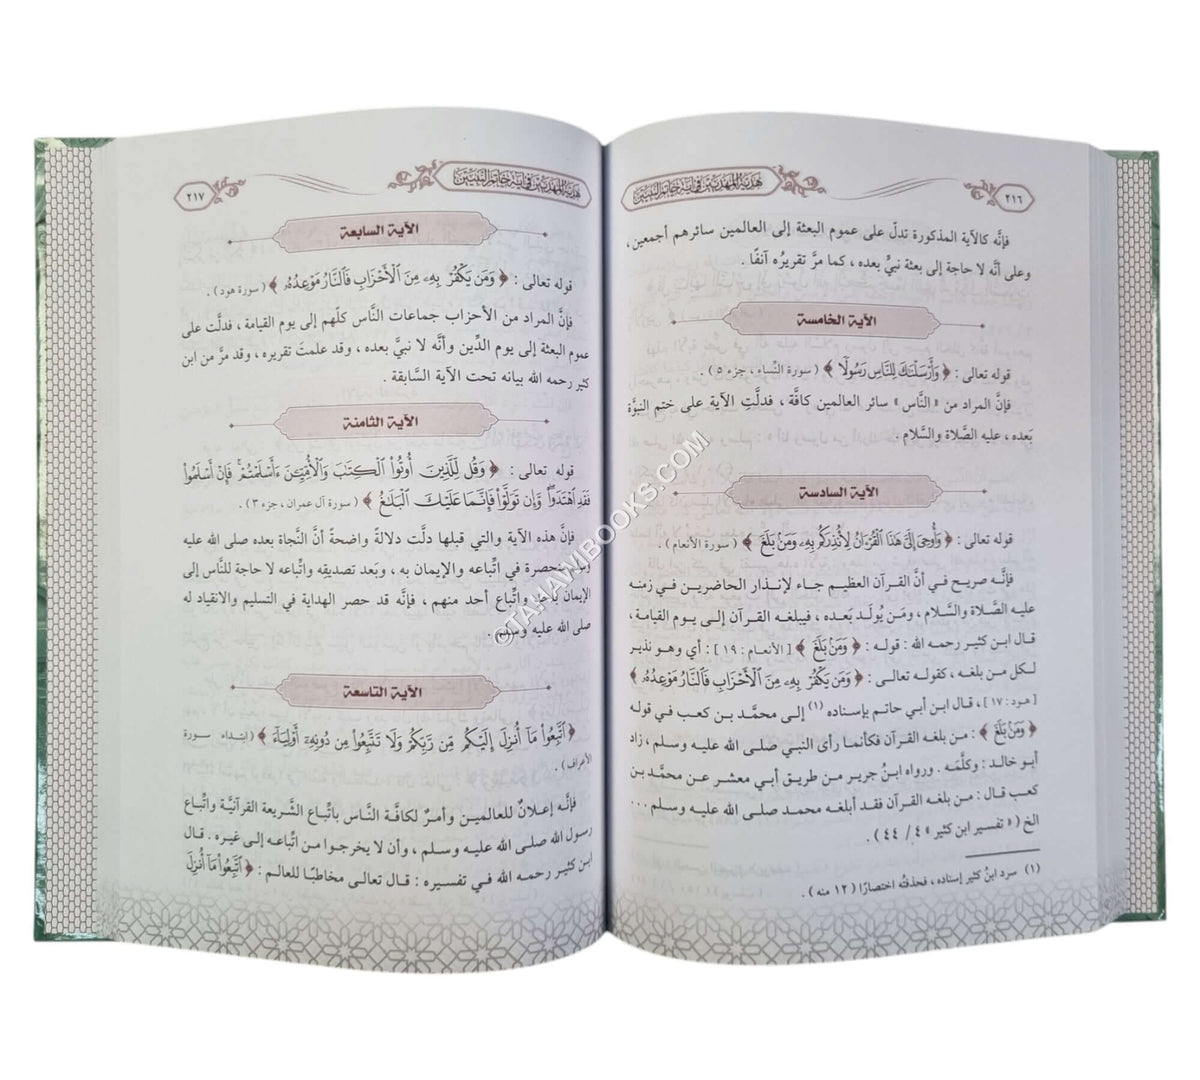 ٢١٦
هدية المهديين في آية خاتم النبيين
فإنَّه كالآية المذكورة تدلّ على عموم البعثة إلى العالمين سائرهم أجمعين ،
وعلى أنَّه لا حاجة إلى بعثة نبيٍّ بعده ، كما مرَّ تقريرُه آنفًا .
الآية الخامسة
قوله تعالى : ﴿ وَأَرْسَلْنَكَ لِلنَّاسِ رَسُولًا ﴾ ( سورة النِّساء ، جزء ٥ ) .
فإنَّ المراد من « النَّاس » سائر العالمين كافَّة ، فدلَّتِ الآية على ختم النبوَّة
بَعده ، عليه الصَّلاة والسَّلام .
الآية السادسة
قوله تعالى : ﴿ وَأُوحِىَ إِلَىَّ هَٰذَا الْقُرْءَانُ لِأُنذِرَكُم بِهِۦ وَمَنۢ بَلَغَ ﴾ ( سورة الأنعام ) .
فإنَّه صريح في أنَّ القرآن العظيم جاء لإنذار الحاضرين في زمنه
عليه الصَّلاة والسَّلام ، ومَن يُولَد بَعده ، فيبلغه القرآن إلى يوم القيامة ،
قال ابن كثير رحمه الله : قولـه : ﴿ وَمَنۢ بَلَغَ ﴾ [ الأنعام : ١٩ ] : أي وهو نذير
لكل من بلغه ، كقولـه تعالى : ﴿ وَمَن يَكْفُرْ بِهِۦ مِنَ الْأَحْزَابِ فَالنَّارُ مَوْعِدُهُ ﴾
[ هود : ١٧ ] ، قال ابن أبي حاتم بإسناده (١) إلى محمَّد بن كعب في قوله
﴿ وَمَنۢ بَلَغَ ﴾ : من بلغه القرآن فكأنما رأى النبي صلى الله عليه وسلم ، زاد
أبو خالد : وكلَّمَه . ورواه ابنُ جرير من طريق أبي معشر عن محمَّد بن
كعب قال : من بلغه القرآن فقد أبلغه محمد صلى الله عليه وسلم ...
الخ ( « تفسير ابن كثير » ٤ / ٤٤ ) .
(١) سرد ابنُ كثير إسناده ، فحذفتُه اختصارًا ( ١٢ منه ) .
هدية المهديين في آية خاتم النبيين
٢١٧
الآية السابعة
قوله تعالى : ﴿ وَمَن يَكْفُرْ بِهِۦ مِنَ الْأَحْزَابِ فَالنَّارُ مَوْعِدُهُ ﴾ ( سورة هود ) .
فإنَّ المراد من الأحزاب جماعات النَّاس كلّهم إلى يوم القيامة ، فدلَّت على
عموم البعثة إلى يوم الدِّين وأنَّه لا نبيَّ بعده ، وقد علمتَ تقريره ، وقد مرَّ من ابن
كثير رحمه الله بيانه تحت الآية السَّابقة .
الآية الثامنة
قوله تعالى : ﴿ وَقُل لِّلَّذِينَ أُوتُوا۟ الْكِتَٰبَ وَالْأُمِّيِّـۧنَ ءَأَسْلَمْتُمْ ۚ فَإِنْ أَسْلَمُوا۟
فَقَدِ اهْتَدَوا۟ ۖ وَّإِن تَوَلَّوْا۟ فَإِنَّمَا عَلَيْكَ الْبَلَٰغُ ﴾ ( سورة آل عمران ، جزء ٣ ) .
فإنَّ هذه الآية والتي قبلها دلَّت دلالةً واضحةً أنَّ النَّجاة بعده صلى الله عليه
وسلم منحصرة في اتِّباعه والإيمان به ، وبَعد تصديقِه واتِّباعه لا حاجة للنَّاس إلى
الإيمان بأحد واتِّباع أحد منهم ، فإنَّه قد حصر الهداية في التسليم والانقياد له
صلى الله عليه وسلم .
الآية التاسعة
﴿ اتَّبِعُوا۟ مَآ أُنزِلَ إِلَيْكُم مِّن رَّبِّكُمْ وَلَا تَتَّبِعُوا۟ مِن دُونِهِۦٓ أَوْلِيَآءَ ﴾ ( ابتداء سورة
الأعراف ) .
فإنَّه إعلانٌ للعالمين وأمرٌ لكافَّة الناس باتِّباع الشَّريعة القرآنيَّة واتِّباع
رسول الله صلى الله عليه وسلم ، وأن لا يخرجوا من اتِّباعه إلى غيره . قال
ابن كثير رحمه الله في تفسيره : قال تعالى مخاطبًا للعالم : ﴿ اتَّبِعُوا۟ مَآ أُنزِلَ
©TAHAWIBOOKS.COM